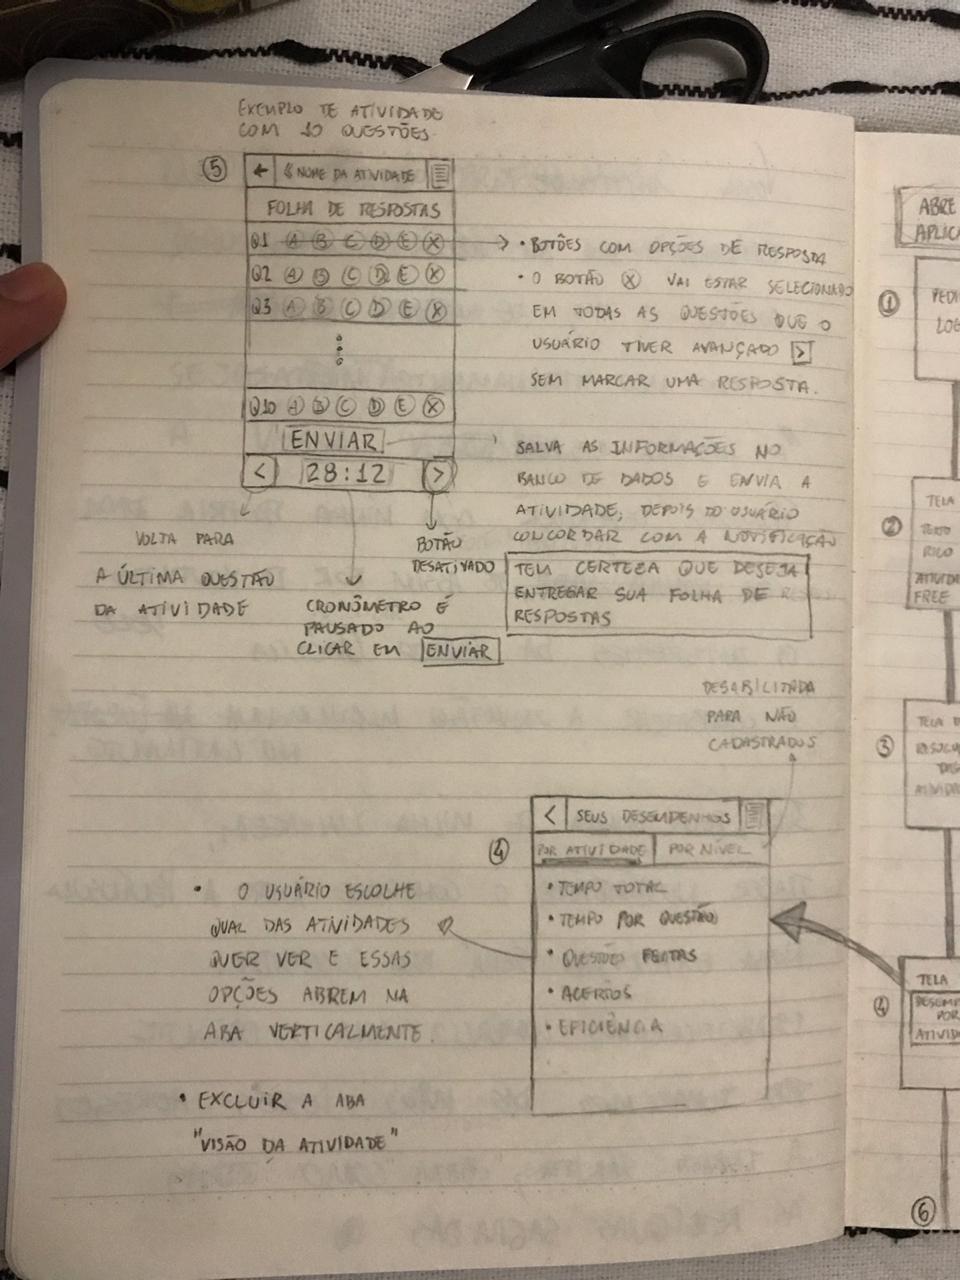 EXEMPLO TE ATIVIDADE
COM 10 QUESTÕES
5
← « NOME DA ATIVIDADE
FOLHA DE RESPOSTAS
Q1 A B C D E X
Q2 A B C D E X
Q3 A B C D E X
Q10 A B C D E X
ENVIAR
< 28:12 >
• BOTÕES COM OPÇÕES DE RESPOSTA
• O BOTÃO X VAI ESTAR SELECIONADO
EM TODAS AS QUESTÕES QUE O
USUÁRIO TIVER AVANÇADO >
SEM MARCAR UMA RESPOSTA.
SALVA AS INFORMAÇÕES NO
BANCO DE DADOS E ENVIA A
ATIVIDADE, DEPOIS DO USUÁRIO
CONCORDAR COM A NOTIFICAÇÃO
TEM CERTEZA QUE DESEJA
ENTREGAR SUA FOLHA DE
RESPOSTAS
VOLTA PARA
A ÚLTIMA QUESTÃO
DA ATIVIDADE
CRONÔMETRO É
PAUSADO AO
CLICAR EM ENVIAR
BOTÃO
DESATIVADO
DESABILITADA
PARA NÃO
CADASTRADOS
4
< SEUS DESEMPENHOS
POR ATIVIDADE POR NÍVEL
• TEMPO TOTAL
• TEMPO POR QUESTÃO
• QUESTÕES FEITAS
• ACERTOS
• EFICIÊNCIA
• O USUÁRIO ESCOLHE
QUAL DAS ATIVIDADES
QUER VER E ESSAS
OPÇÕES ABREM NA
ABA VERTICALMENTE.
• EXCLUIR A ABA
"VISÃO DA ATIVIDADE"
ABRE
1
2
TELA
RICO
FREE
3
TELA
4
TELA
POR
6